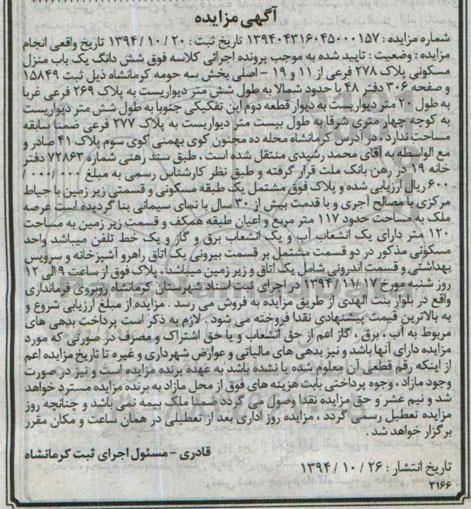 آگهی مزایده
شماره مزایده : ۱۳۹۴۰۴۳۱۶۰۴۵۰۰۰۱۵۷ تاریخ ثبت : ۲۰ / ۱۰ / ۱۳۹۴ تاریخ واقعی انجام
مزایده : وضعیت : تایید شده به موجب پرونده اجرائی کلاسه فوق شش دانگ یک باب منزل
مسکونی پلاک ۲۷۸ فرعی از ۱۱ و ۱۹ - اصلی بخش سه حومه کرمانشاه ذیل ثبت ۱۵۸۴۹
و صفحه ۳۰۶ دفتر ۴۸ با حدود شمالا به طول شش متر دیواریست به پلاک ۲۶۹ فرعی غربا
به طول ۲۰ متر دیواریست به دیوار قطعه دوم این تفکیکی جنوبا به طول شش متر دیواریست
به کوچه چهار متری شرقا به طول بیست متر دیواریست به پلاک ۲۷۷ فرعی ضمنا سابقه
مساحت ندارد به آدرس کرمانشاه محله ده مجنون کوی بهمنی کوی سوم پلاک ۴۱ صادر و
مع الواسطه به آقای محمد رشیدی منتقل شده است ، طبق سند رهنی شماره ۷۲۸۶۳ دفتر
خانه ۱۹ در رهن بانک ملت قرار گرفته و طبق نظر کارشناس رسمی به مبلغ ۰۰۰/۰۰۰/
۶۰۰ ریال ارزیابی شده و پلاک فوق مشتمل یک طبقه مسکونی و قسمتی زیر زمین با حیاط
مرکزی با مصالح آجری و با قدمت بیش از ۳۰ سال با نمای سیمانی بنا گردیده است عرصه
ملک به مساحت حدود ۱۱۷ متر مربع و اعیان طبقه همکف و قسمت زیر زمین به مساحت
۱۲۰ متر دارای یک انشعاب آب و یک انشعاب برق و گاز و یک خط تلفن میباشد واحد
مسکونی مذکور در دو قسمت مشتمل بر قسمت بیرونی یک اتاق راهرو آشپزخانه و سرویس
بهداشتی و قسمت اندرونی شامل یک اتاق و زیر زمین میباشد. پلاک فوق از ساعت ۹ الی ۱۲
روز شنبه مورخ ۱۷ / ۱۱ / ۱۳۹۴ در اجرای ثبت اسناد شهرستان کرمانشاه روبروی فرمانداری
واقع در بلوار بنت الهدی از طریق مزایده به فروش می رسد . مزایده از مبلغ ارزیابی شروع و
به بالاترین قیمت پیشنهادی نقدا فروخته می شود ، لازم به ذکر است پرداخت بدهی های
مربوط به آب ، برق ، گاز اعم از حق انشعاب و یا حق اشتراک و مصرف در صورتی که مورد
مزایده دارای آنها باشد و نیز بدهی های مالیاتی و عوارض شهرداری و غیره تا تاریخ مزایده اعم
از اینکه رقم قطعی آن معلوم شده یا نشده باشد به عهده برنده مزایده است و نیز در صورت
وجود مازاد ، وجوه پرداختی بابت هزینه های فوق از محل مازاد به برنده مزایده مسترد خواهد
شد و نیم عشر و حق مزایده نقدا وصول می گردد ضمنا ملک بیمه نمی باشد و چنانچه روز
مزایده تعطیل رسمی گردد ، مزایده روز اداری بعد از تعطیلی در همان ساعت و مکان مقرر
برگزار خواهد شد .
قادری - مسئول اجرای ثبت کرمانشاه
تاریخ انتشار : ۲۶ / ۱۰ / ۱۳۹۴
۳۱۶۶